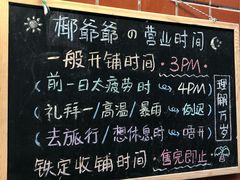 椰爷爷の营业时间
一般开铺时间·3PM·
(前一日太疲劳时 → 4PM)
(礼拜一/高温/暴雨 → 倒迟)
(去旅行/想休息时 → 唔开)
铁定收铺时间·售完即止
理解万岁